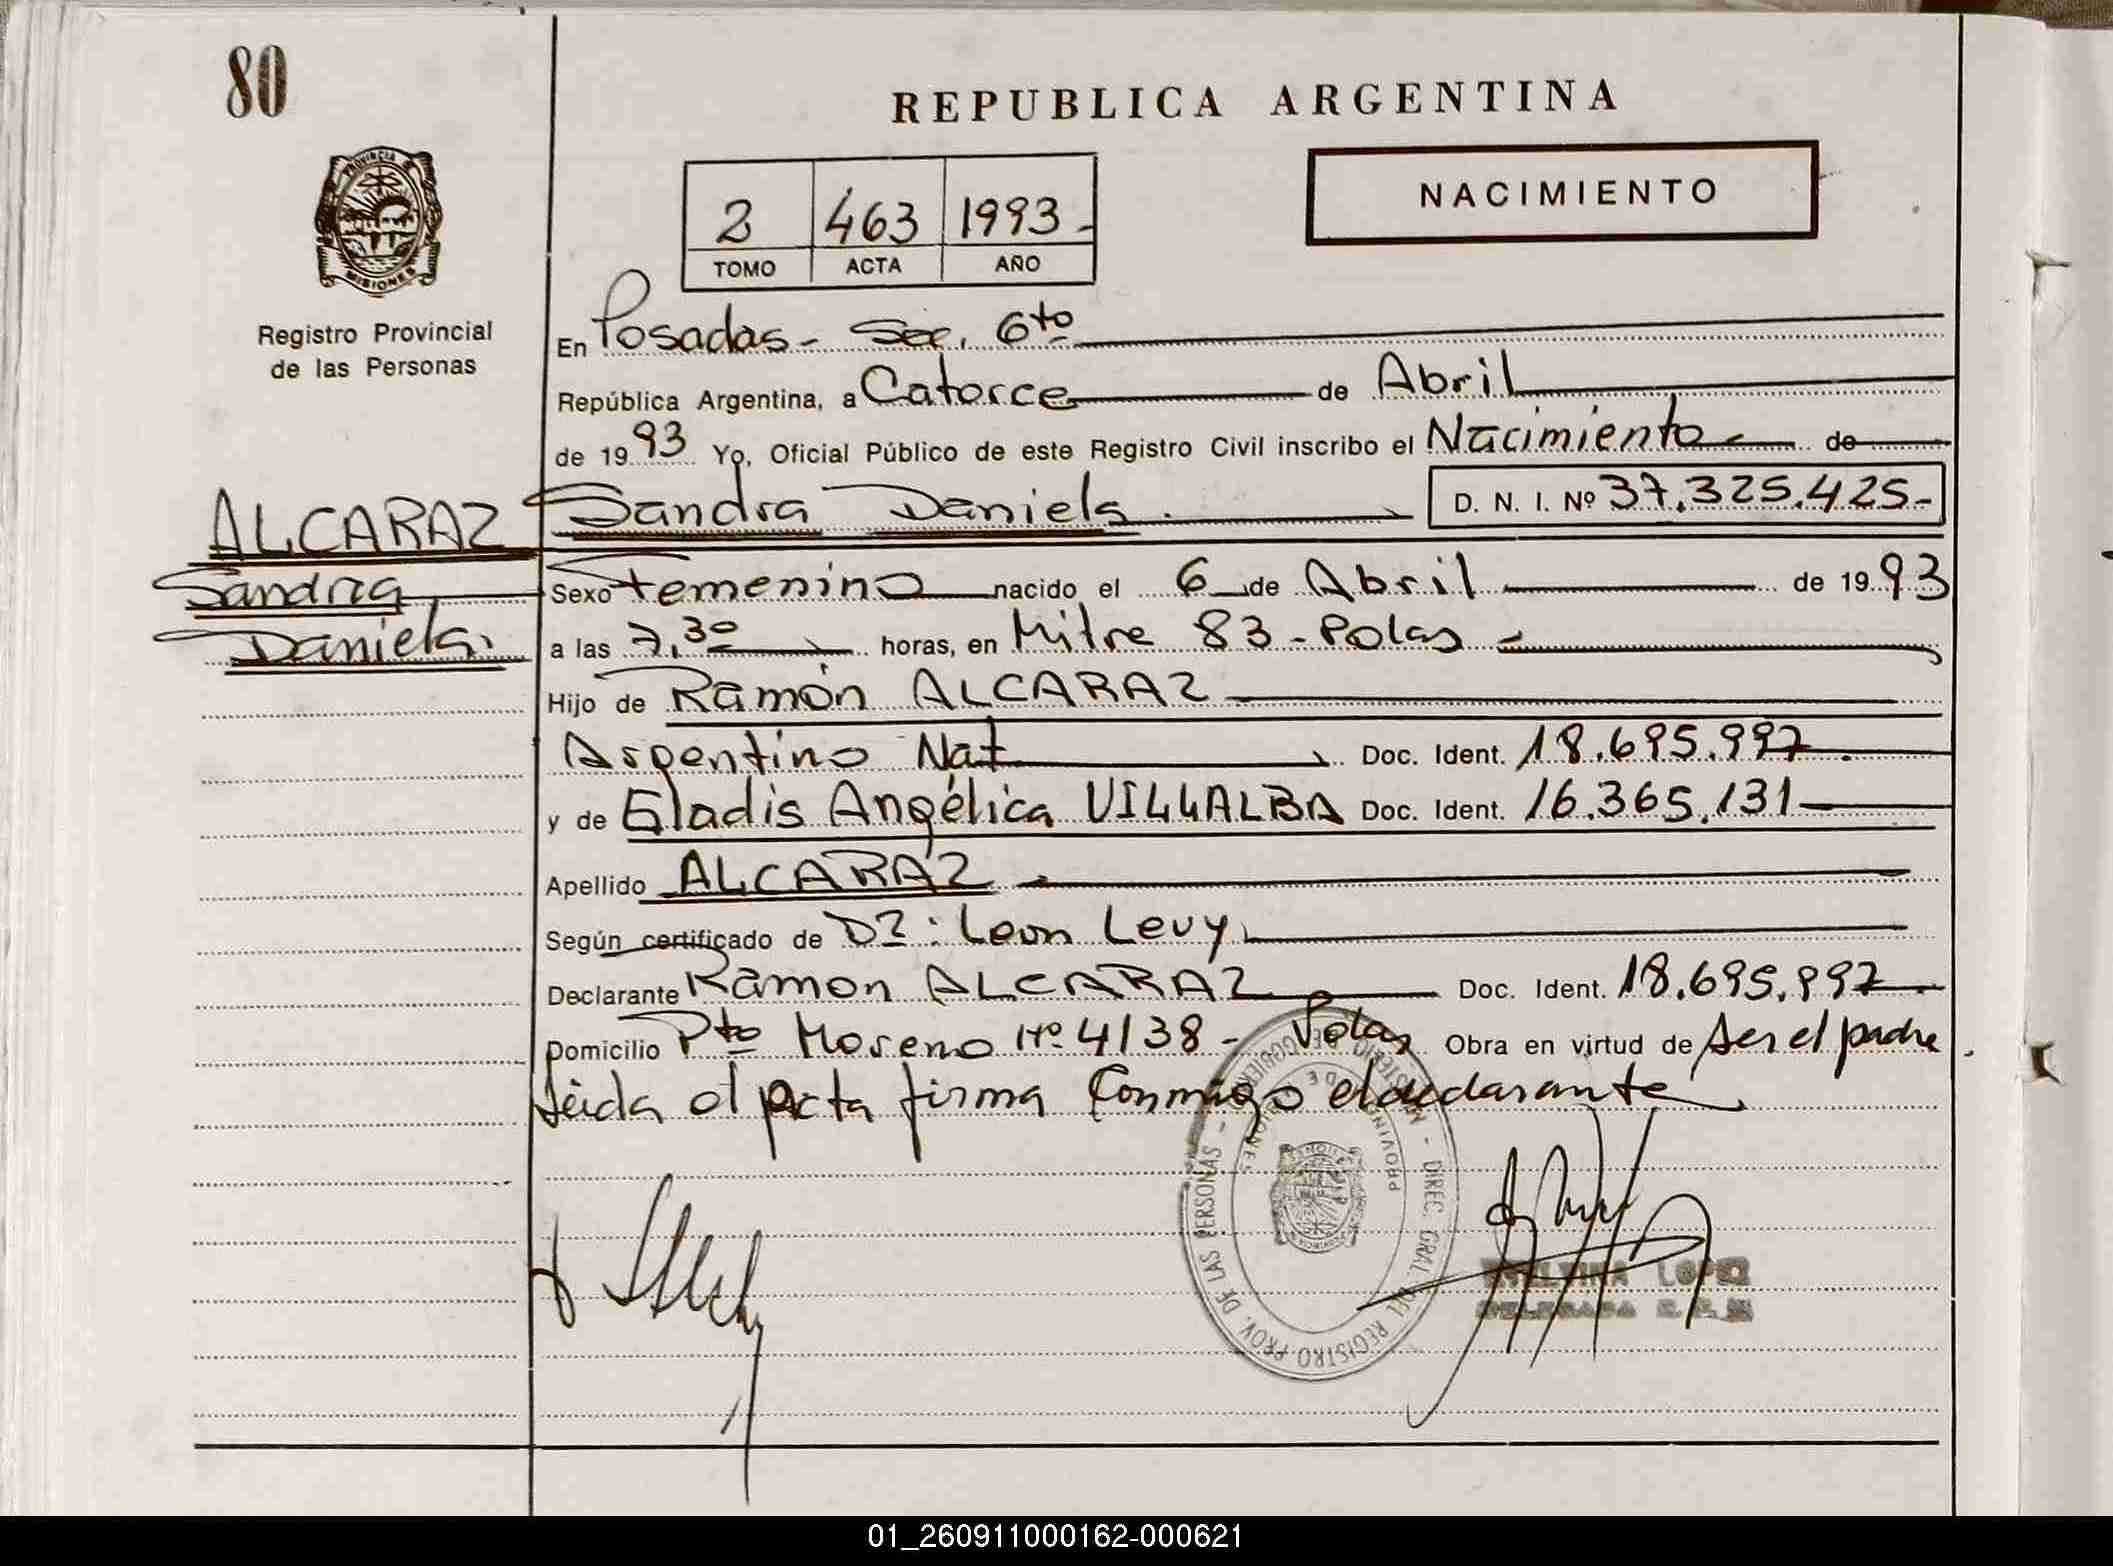 80
REPUBLICA ARGENTINA
PROVINCIA DE
MISIONES
Registro Provincial
de las Personas
2 463 1993
TOMO ACTA AÑO
NACIMIENTO
En Posadas - Sec. 6to
República Argentina, a Catorce de Abril
de 1993 Yo, Oficial Público de este Registro Civil inscribo el Nacimiento de
ALCARAZ Sandra Daniela. D. N. I. Nº 37.325.425-
Sandra Sexo Femenino nacido el 6 de Abril de 1993
Daniela. a las 7,30 horas, en Mitre 83 - Pdas
Hijo de Ramón ALCARAZ
Argentino Nat Doc. Ident. 18.695.997
y de Gladis Angélica VILLALBA Doc. Ident. 16.365.131
Apellido ALCARAZ
Según certificado de Dr: Leon Levy
Declarante Ramon ALCARAZ Doc. Ident. 18.695.997
Domicilio Pto Moreno Nº 4138 - Pdas Obra en virtud de ser el padre.
Leida el acta firma conmigo el declarante
DIREC. GRAL. DEL REGISTRO PROV. DE LAS PERSONAS - MINISTERIO DE GOBIERNO
PROVINCIA DE MISIONES
LOPEZ
01_260911000162-000621